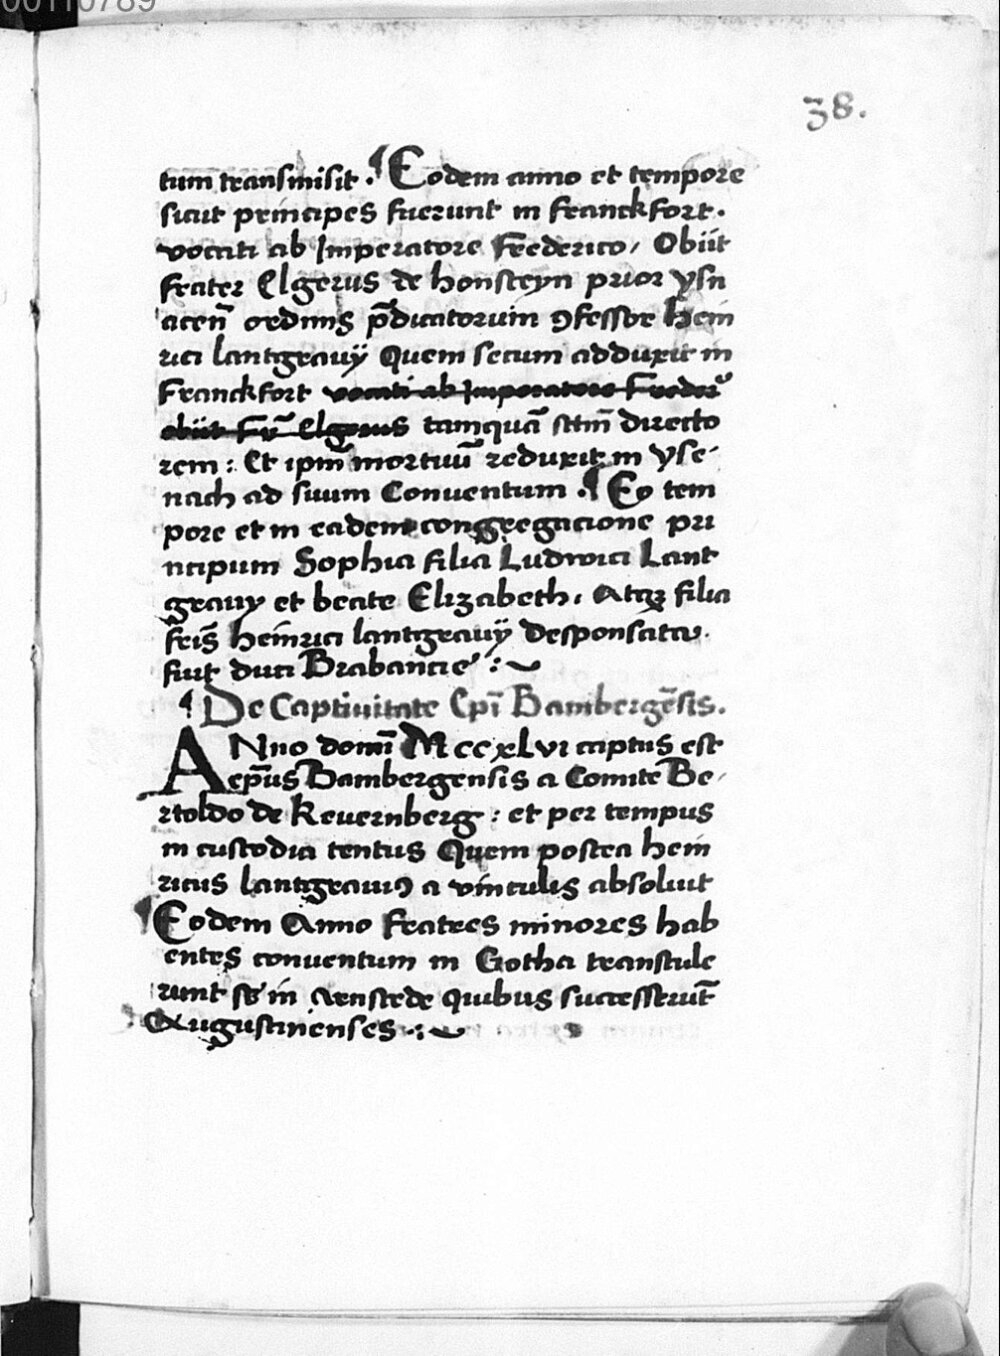 00110789
38.
tum transmisit. ¶ Eodem anno et tempore
sicut principes fuerunt in Franckfort.
vocati ab Imperatore Frederico, Obiit
frater Elgerus de honsteyn prior ysn
acen̄ ordinis p̄dicatorum ꝯfessor hein
rici lantgravij Quem secum adduxit in
Franckfort vocati ab Imperatore Freder
obiit Fr̄ Elgerus tamquā sctm̄ directo
rem: Et ipm̄ mortuū reduxit in yse-
nach ad suum Conventum. ¶ Eo tem
pore et in eadem congregacione pri
ncipum Sophia filia Ludwici Lant
gravy et beate Elizabeth. Atqꝫ filia
fr̄is heinrici lantgravij desponsata.
fuit duci Brabancie :~
¶ De Captivitate Ep̄i Bambergēsis.
ANno domī MccxLvi captus est
ep̄us Bambergensis a Comite Be-
rtoldo de Kevernberg: et per tempus
in custodia tentus Quem postea hein
ricus lantgraviꝯ a vinculis absoluit
¶ Eodem Anno fratres minores hab
entes conventum in Gotha transtule
runt se in Arnstede quibus successerūt
Augustinenses .:~